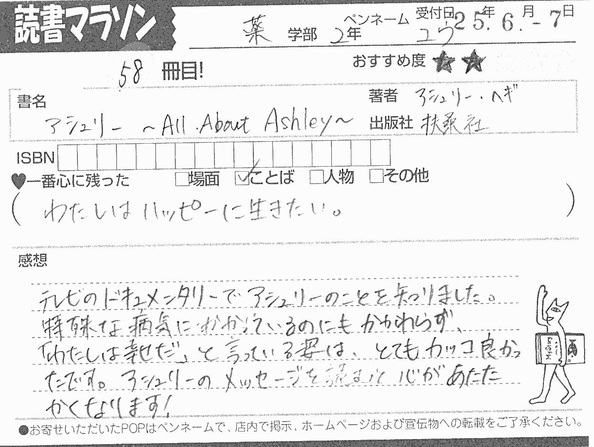 読書マラソン
薬 学部 2年 ペンネーム ユウ 受付日 25年 6月 -7日
58 冊目! おすすめ度 ★★
書名 著者 アシュリー・ヘギ
アシュリー ～All About Ashley～ 出版社 扶桑社
ISBN
♥一番心に残った □場面 ☑ことば □人物 □その他
(わたしはハッピーに生きたい。)
感想
テレビのドキュメンタリーでアシュリーのことを知りました。
特殊な病気にかかっているのにもかかわらず、
「わたしは幸せだ」と言っている姿は、とてもカッコ良かっ
たです。アシュリーのメッセージを読むと心があたた
かくなります!
●お寄せいただいたPOPはペンネームで、店内で掲示、ホームページおよび宣伝物への転載をご了承ください。